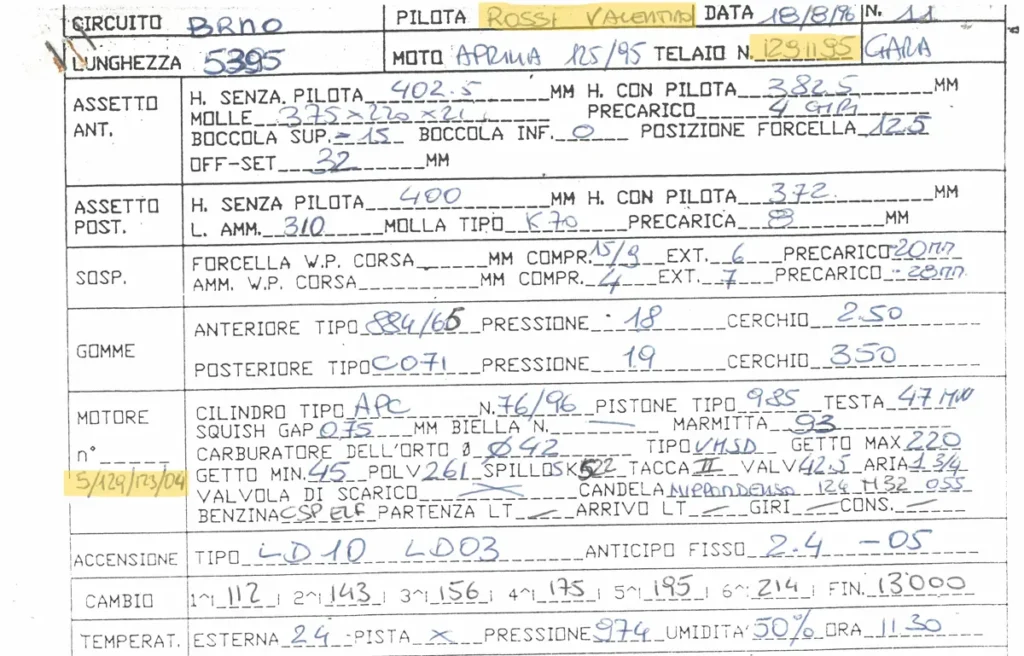 CIRCUITO BRNO PILOTA ROSSI VALENTINO DATA 18/8/96 N. 11
LUNGHEZZA 5395 MOTO APRILIA 125/95 TELAIO N. 1291195 GARA
ASSETTO ANT.
H. SENZA PILOTA 402.5 MM H. CON PILOTA 382.5 MM
MOLLE 375x220x21 PRECARICO 4 GIRI
BOCCOLA SUP. =15 BOCCOLA INF. 0 POSIZIONE FORCELLA 12.5
OFF-SET 32 MM
ASSETTO POST.
H. SENZA PILOTA 400 MM H. CON PILOTA 372 MM
L. AMM. 310 MOLLA TIPO K70 PRECARICA 8 MM
SOSP.
FORCELLA W.P. CORSA MM COMPR. 15/9 EXT. 6 PRECARICO -20mm
AMM. W.P. CORSA MM COMPR. 4 EXT. 7 PRECARICO -28mm
GOMME
ANTERIORE TIPO 884/65 PRESSIONE 18 CERCHIO 2.50
POSTERIORE TIPO C071 PRESSIONE 1.9 CERCHIO 350
MOTORE
n°
5/129/123/04
CILINDRO TIPO APC N. 76/96 PISTONE TIPO 985 TESTA 47
SQUISH GAP 075 MM BIELLA N. — MARMITTA 93
CARBURATORE DELL'ORTO Ø Ø42 TIPO VHSD GETTO MAX 220
GETTO MIN. 45 POLV 261 SPILLO SK522 TACCA II VALV 42.5 ARIA 1 3/4
VALVOLA DI SCARICO CANDELA NIPPONDENSO 124 M32 055
BENZINA CSP ELF PARTENZA LT — ARRIVO LT — GIRI — CONS. —
ACCENSIONE TIPO LD10 LD03 ANTICIPO FISSO 2.4 -05
CAMBIO 1^| 112 | 2^| 143 | 3^| 156 | 4^| 175 | 5^| 195 | 6^| 214 | FIN. 13'000
TEMPERAT. ESTERNA 24 PISTA x PRESSIONE 974 UMIDITA' 50% ORA 11.30